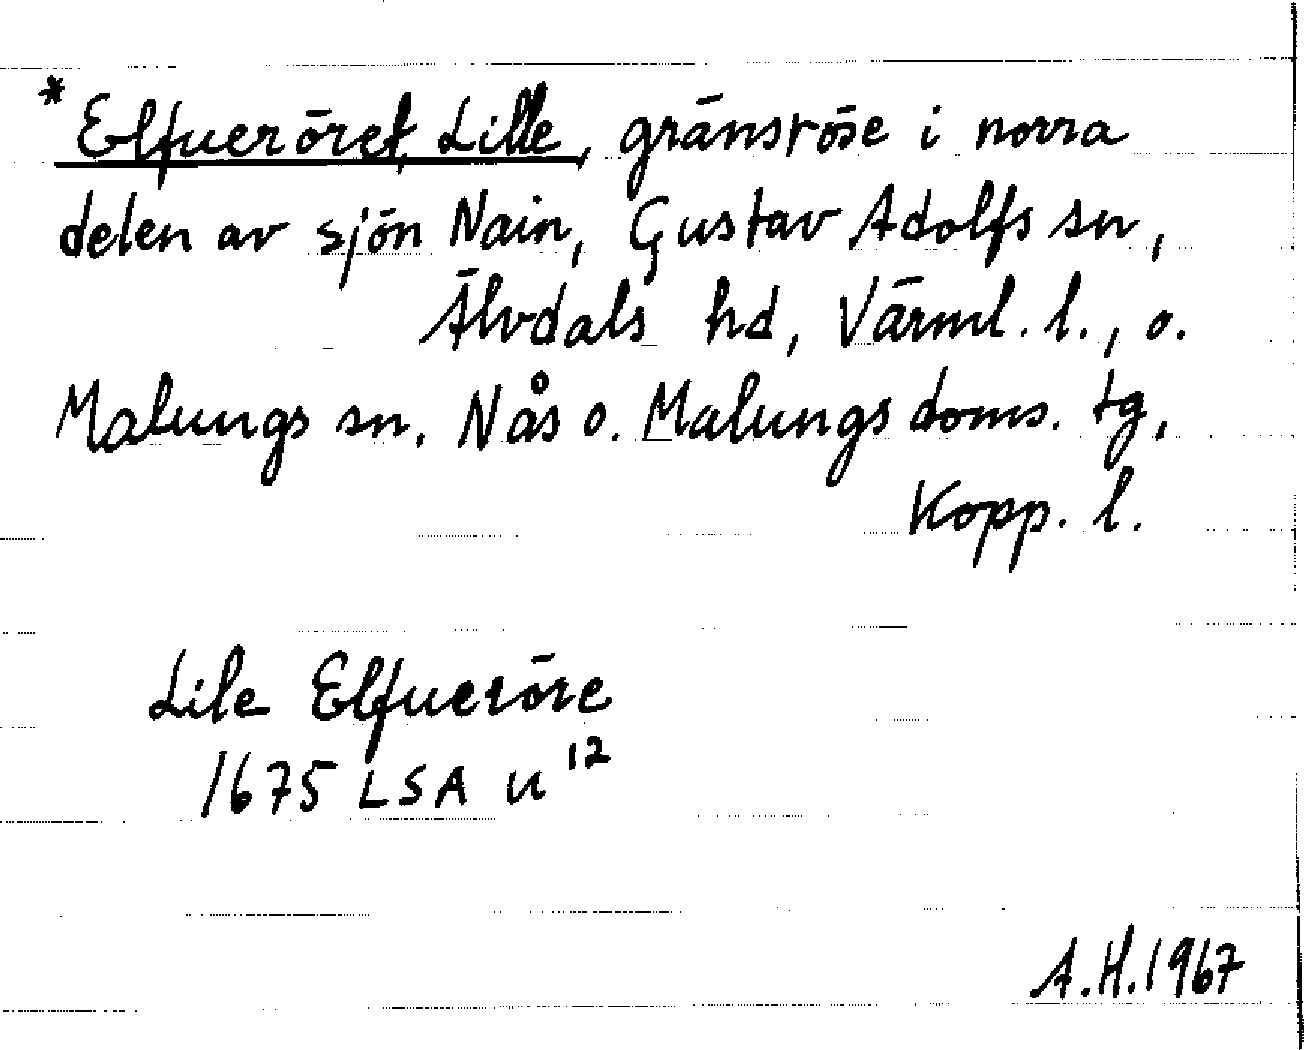 *Elfueröret, Lille, gränsröse i norra
delen av sjön Nain, Gustav Adolfs sn,
Älvdals hd, Värml. l., o.
Malungs sn. Nås o. Malungs doms. tg,
Kopp. l.
Lile Elfueröre
1675 LSA u¹²
A.H. 1967